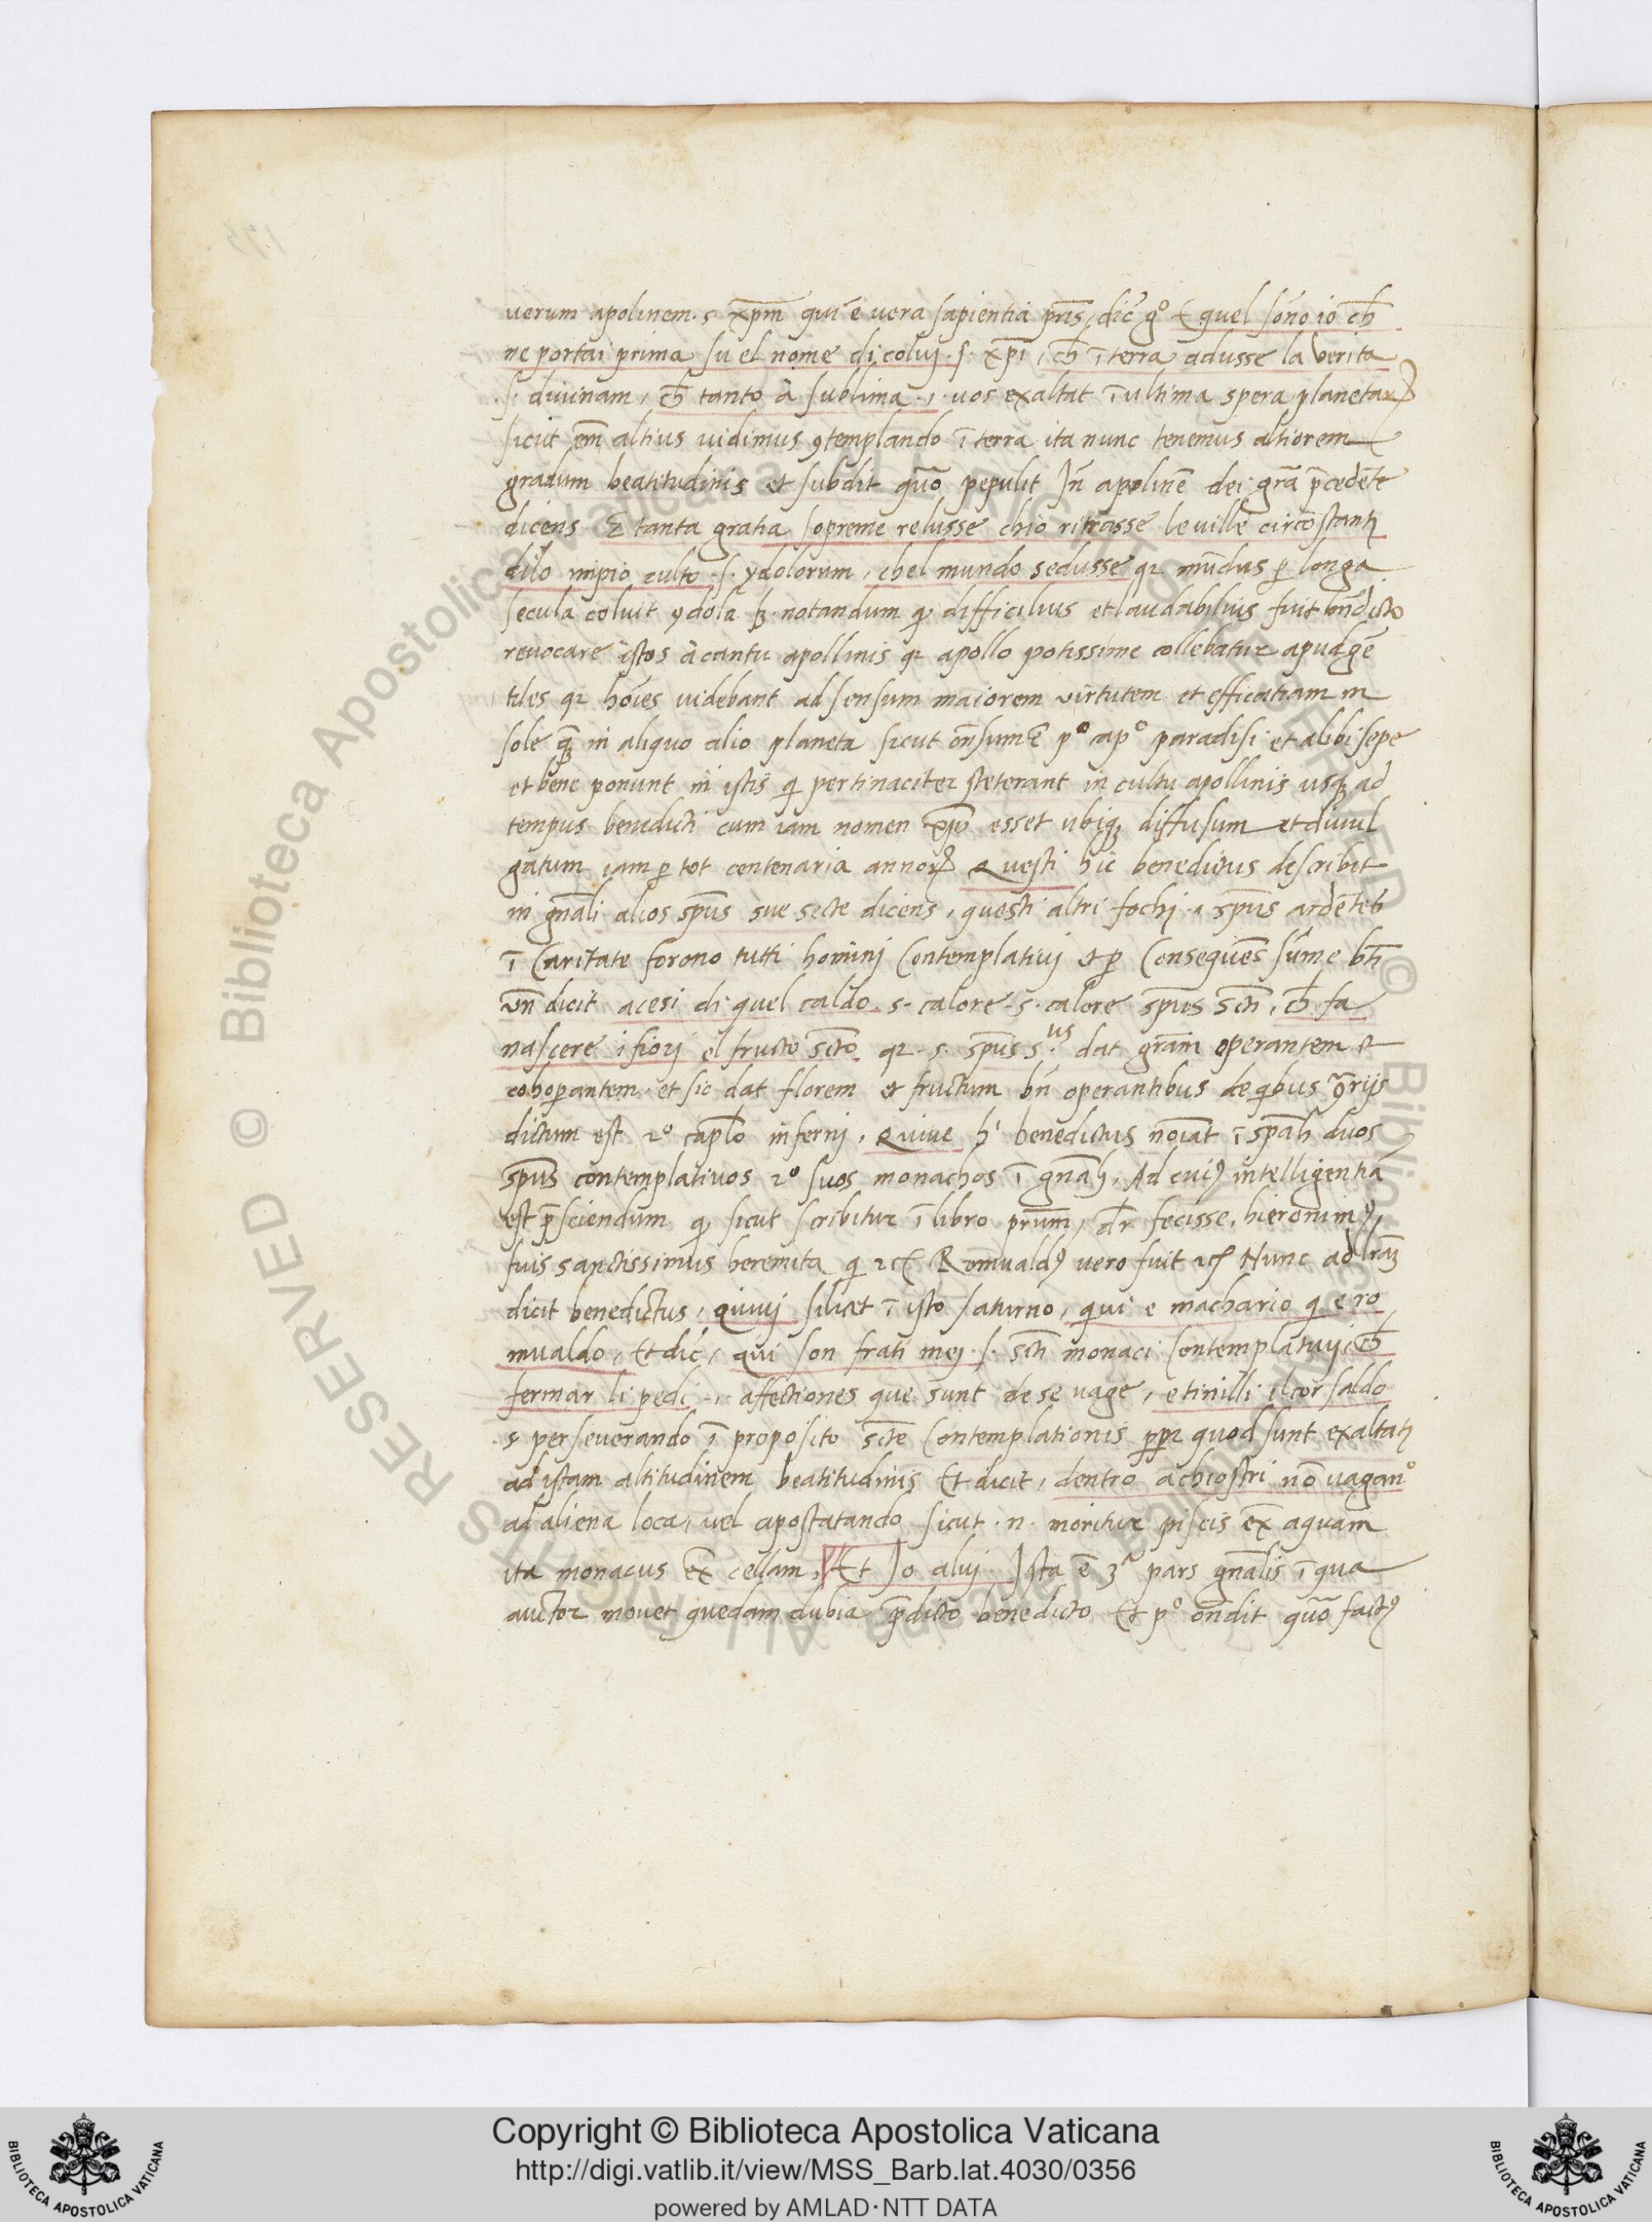 verum apolinem .s. xp̄m qui ē uera sapientia pr̄is, dic̄ gº Et quel sóno io ch̄
ne portai prima su el nome di coluj .s. xp̄i, ch̄ ī terra adusse la verita
.s. diuinam, ch̄ tanto à sublima .i. uos exaltat ī ultima spera planetarꝝ
sicut em̄ altius uidimus ꝯtemplando ī terra ita nunc tenemus altiorem
gradum beatitudinis et subdit quō pepulit apolinē dei gr̄a p̄cedēte
dicens E tanta gratia sopreme relusse chiò ritrasse le uille circostantj
dilo impio culto .s. ydolorum, chel mundo sedusse qr mūdus ꝑ longa
secula coluit ydola notandum ꝙ difficilius et laudabilius fuit bn̄dicto
reuocare istos à cantu apollinis qr apollo potissime collebatur apud gē
tiles qr hoīes uidebant ad sensum maiorem virtutem et efficatiam in
sole quā in aliquo alio planeta sicut pº capº paradisi et alibi sepe
et bene ponunt in istis qi pertinaciter steterant in cultu apollinis usqꝫ ad
tempus benedicti cum iam nomen esset ubiqꝫ diffusum et diuul
gatum iam ꝑ tot centenaria annorꝝ Questi hic benedictus describit
in gn̄ali alios spūs sue secte dicens, questi altri fochj .i. spūs ardētes
ī Caritate forono tutti homini Contemplatiuj et ꝑ Consequēs sūme btī
vn̄ dicit acesi di quel caldo .s. calore .s. calore spūs sctī, ch̄ fa
nascere i fiorj el fructo scto qr .s. spūs s.us dat gr̄am operantem et
cohoꝑantem, et sic dat florem et fructum bn̄ operantibus de qibus ꝯ̄rijs
dictum est 2º caplo infernj, Quiue hi benedictus noīat ī spāli duos
spūs contemplatiuos 2º suos monachos ī gnāli, Ad cuiꝰ intelligentiā
est p̄sciendum ꝙ sicut scribitur ī libro prūm, dr̄ fecisse, hieronimꝰ,
fuis sanctissimus heremita qi 2cſ Romualdꝰ uero fuit 2cſ Nunc ad lr̄aꝫ
dicit benedictus, Quiuj silicet ī isto saturno, qui e machario qi e ro
mualdo, Et dic̄, qui son frati mej .s. sctī monaci Contemplatiuj, ch̄
fermar li pedi .i. affectiones que sunt de se uage, e tinilli il cor saldo
.s. perseuerando ī proposito scte Contemplationis ꝓpr quod sunt exaltatj
ad istam altitudinem beatitudinis Et dicit, dentro a chiostri nō uaganº
ad aliena loca, uel apostatando sicut .n. moritur piscis ex̄ aquam
ita monacus ex̄ cellam, Et Jo aluj Ista ē 3ª pars gn̄alis ī qua
auctor mouet quedam dubia p̄dicto benedicto Et pº on̄dit quō factꝰ
Copyright © Biblioteca Apostolica Vaticana
http://digi.vatlib.it/view/MSS_Barb.lat.4030/0356
powered by AMLAD · NTT DATA
BIBLIOTECA APOSTOLICA VATICANA
BIBLIOTECA APOSTOLICA VATICANA